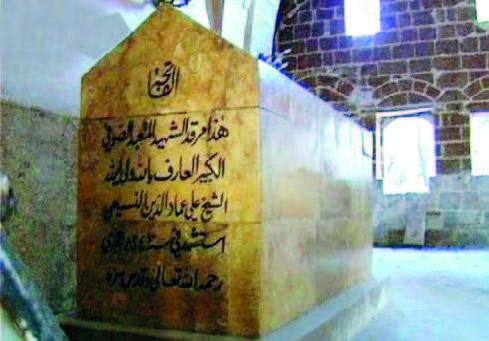 الفاتحة
هذا مرقد الشهيد المتعبد الصوفي
الكبير العارف بالله ولي الله
الشيخ علي عماد الدين النسيمي
استشهد في سنة هجري
رحمه الله تعالى وقدس سره